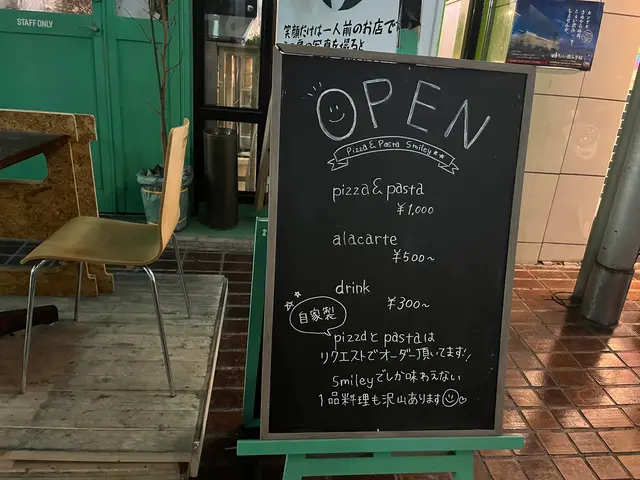 STAFF ONLY
笑顔だけは一人前のお店で
OPEN
Pizza & Pasta Smiley
pizza & pasta
¥1,000
alacarte
¥500~
drink
¥300~
自家製
pizzaとpastaは
リクエストでオーダー頂いてます!!
smileyでしか味わえない
1品料理も沢山あります